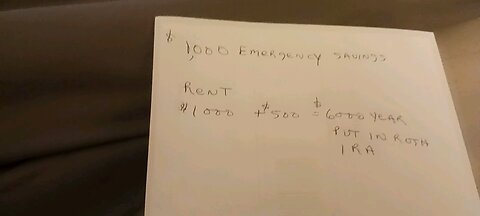 $1,000 EMERGENCY SAVINGS
RENT
$1000 + $500 = $6000 YEAR
PUT IN ROTH
IRA